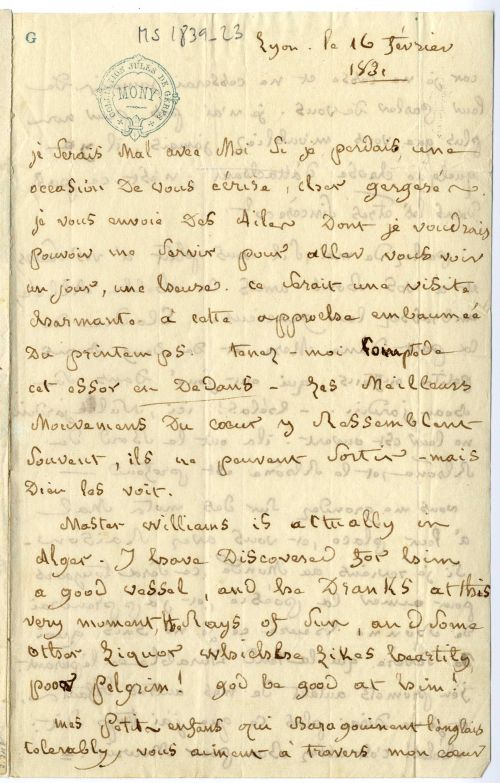 G
MS 1839-23
COLLECTION JULES DE GERES
MONY
Lyon. le 16 février
183
je serais Mal avec Moi Si je perdais une
occasion De vous écrire, cher gergerés.
je vous envoie Des Ailes Dont je voudrais
pouvoir me servir pour aller vous voir
un jour, une heure. ce serait une visite
charmante à cette approche embaumée
Du printemps. tenez-moi compte de
cet essor en Dedans - Les Meilleurs
Mouvemens Du cœur y Ressemblent
Souvent, ils ne peuvent sortir - mais
Dieu les voit.
Master Williams is actually in
Alger. I have Discovered for him
a good vessel, and he DRanks at this
very moment, the Rays of Sun, and Some
other Liquor which he Likes heartily,
poor pelgrim! god be good at him!
mes petits enfans qui Baragouinent l'anglais
tolerably, vous aiment à travers mon cœur